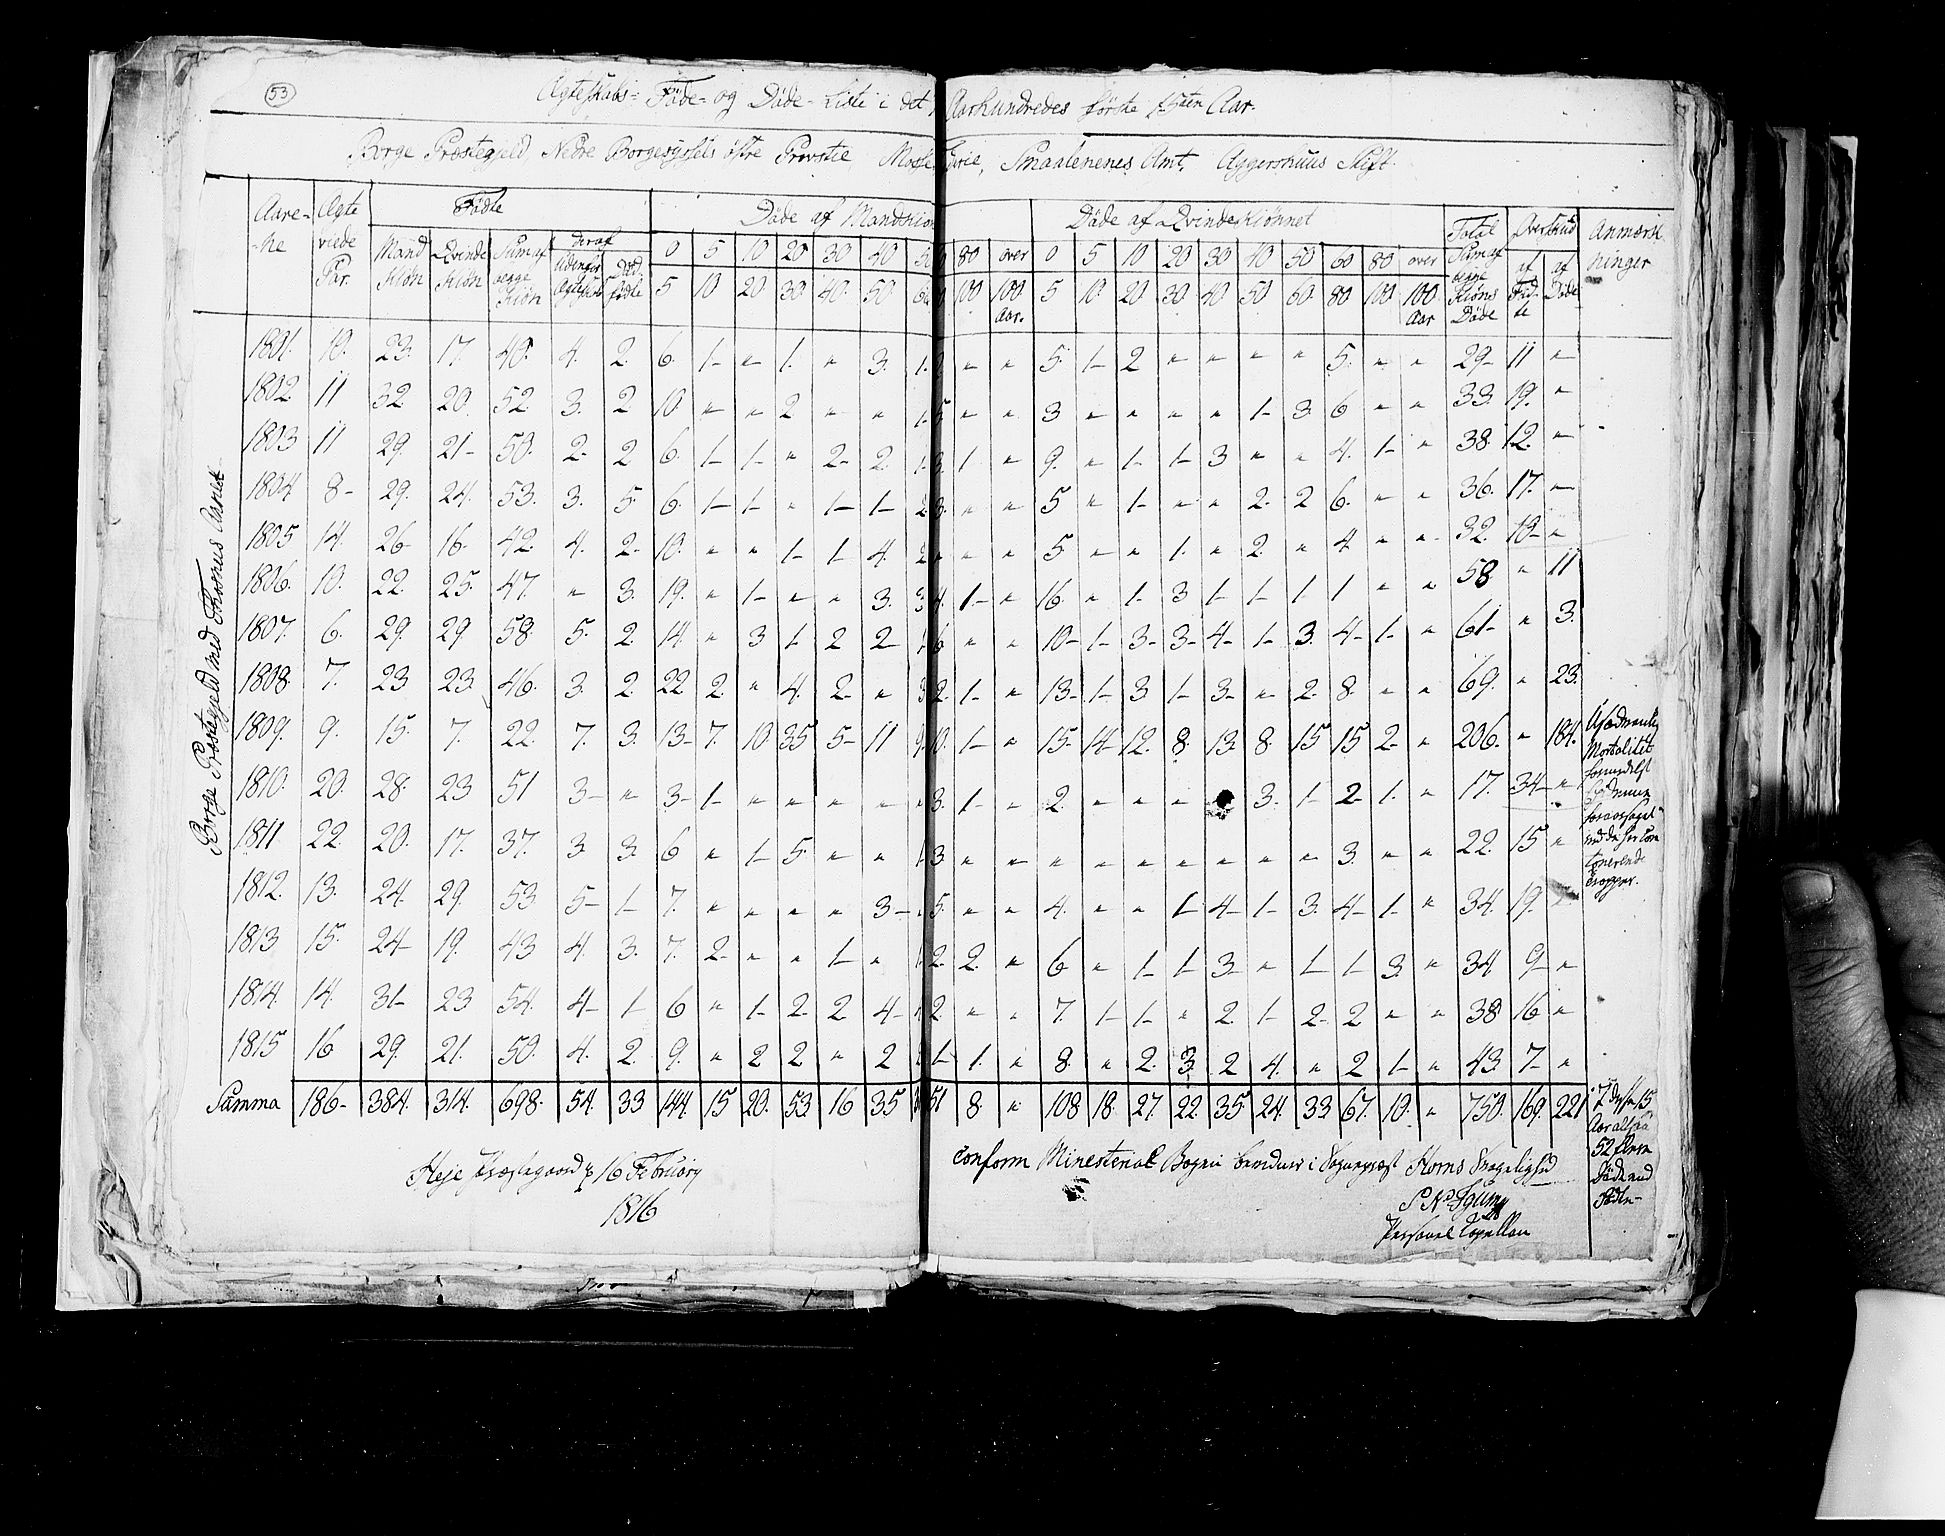 53
Ægteskabs- Føde- og Døde- Liste i det Aarhundredes første 15ten Aar.
Borge Præstegjeld, Nedre Borgesyssels østre Provstie, Smaalenenes Amt, Aggershuus Stift.
Aare- Ægte Fødte Døde af Mandskiøn Døde af Qvindeskiønnet Total Overskud Anmærk
ne viede Mand Qvinde Sum af deraf 0 5 10 20 30 40 50 80 over 0 5 10 20 30 40 50 60 80 over Sum af af af ninger
Par. Kiøn Kiøn begge Kiøn Udenfor Ægteskab Død-fødte 5 10 20 30 40 50 100 100 Aar. 5 10 20 30 40 50 60 80 100 100 Aar begge Kiøns Døde Fød-te Døde
Borge Præstegjeld med Thorsnes Annex
1801. 10. 23. 17. 40. 4. 2. 6. 1 " 1. " 3. 1. " " 5. 1 2 " " " " 5. " " 29 11 "
1802 11 32 20. 52 3. 2 10 " " 2 " " 1 5 " " 3 " " " " 1 3. 6 " " 33. 19. "
1803 11 29. 21 50. 2. 2 6. 1 1 " 2 2. 1 3. 1 " 9. " 1 1 3 " " 4. 1 " 38 12. "
1804 8 29. 24. 53. 3. 5. 6. 1 1 " 1 1 2 3. " " 5 " 1 " " 2. 2 6. " " 36. 17. "
1805 14. 26 16. 42. 4. 2. 10. " " 1 1 4. 2 " " " 5 " " 1. " 2. " 4 " " 32. 10 "
1806. 10. 22. 25. 47. " 3. 19. " 1 " " 3. 3 4. 1 " 16. " 1. 3 1 1 1 1 " " 58 " 11
1807. 6. 29. 29 58. 5. 2. 14. " 3 1 2 2 6 " " 10 1 3 3 4 1 3. 4 1 " 61 " 3.
1808 7. 23. 23. 46. 3. 2. 22 2. " 4. 2 " 3 2. 1 " 13 1 3 1 3 " 2. 8. " " 69. " 23.
1809. 9. 15. 7. 22. 7. 3. 13 7. 10 35 5 11 9 10. 1 " 15 14 12. 8. 13 8. 15 15 2 " 206. " 184.
1810. 20. 28. 23 51 3 " 3 1 " " " " " 3. 1 " 2. " " " 3. 1 2 1. " 17. 34 "
1811 22. 20. 17. 37. 3. 3. 6 " 1 5. " " 3. " " " " " " " " " 3. " " 22. 15 "
1812. 13. 24. 29. 53 5 1 7. " " " " 3 5. " " 4. " " 1 4 1 3. 4 1 " 34. 19. "
1813 15. 24 19. 43 4. 3. 7. 2. " " 1 " 2. 2. " 6 " 1 1 3 " 1 1 3 " 34 9 "
1814. 14. 31 23 54. 4 1 6 " 1 2. 2 4 2. " " 7. 1 1 " 2. 1 2 2 " " 38 16 "
1815 16 29. 21. 50. 4. 2. 9. " 2 2 " 2 1 1. " 8. " 2. 3 2 4. " 2 1 " 43. 7 "
Summa 186 384. 314. 698. 54. 33 144 15 20. 53 16 35 51 8. " 108 18. 27. 22. 35 24. 33. 67. 10. " 750. 169. 221
Mortalitet
Tropper.
i 7 15
Aar altsaa
52 flere
Døde end
Fødte
Heje Præstegaard 16 Februarj
1816
conform Ministerial Bogen
Personel Capellan